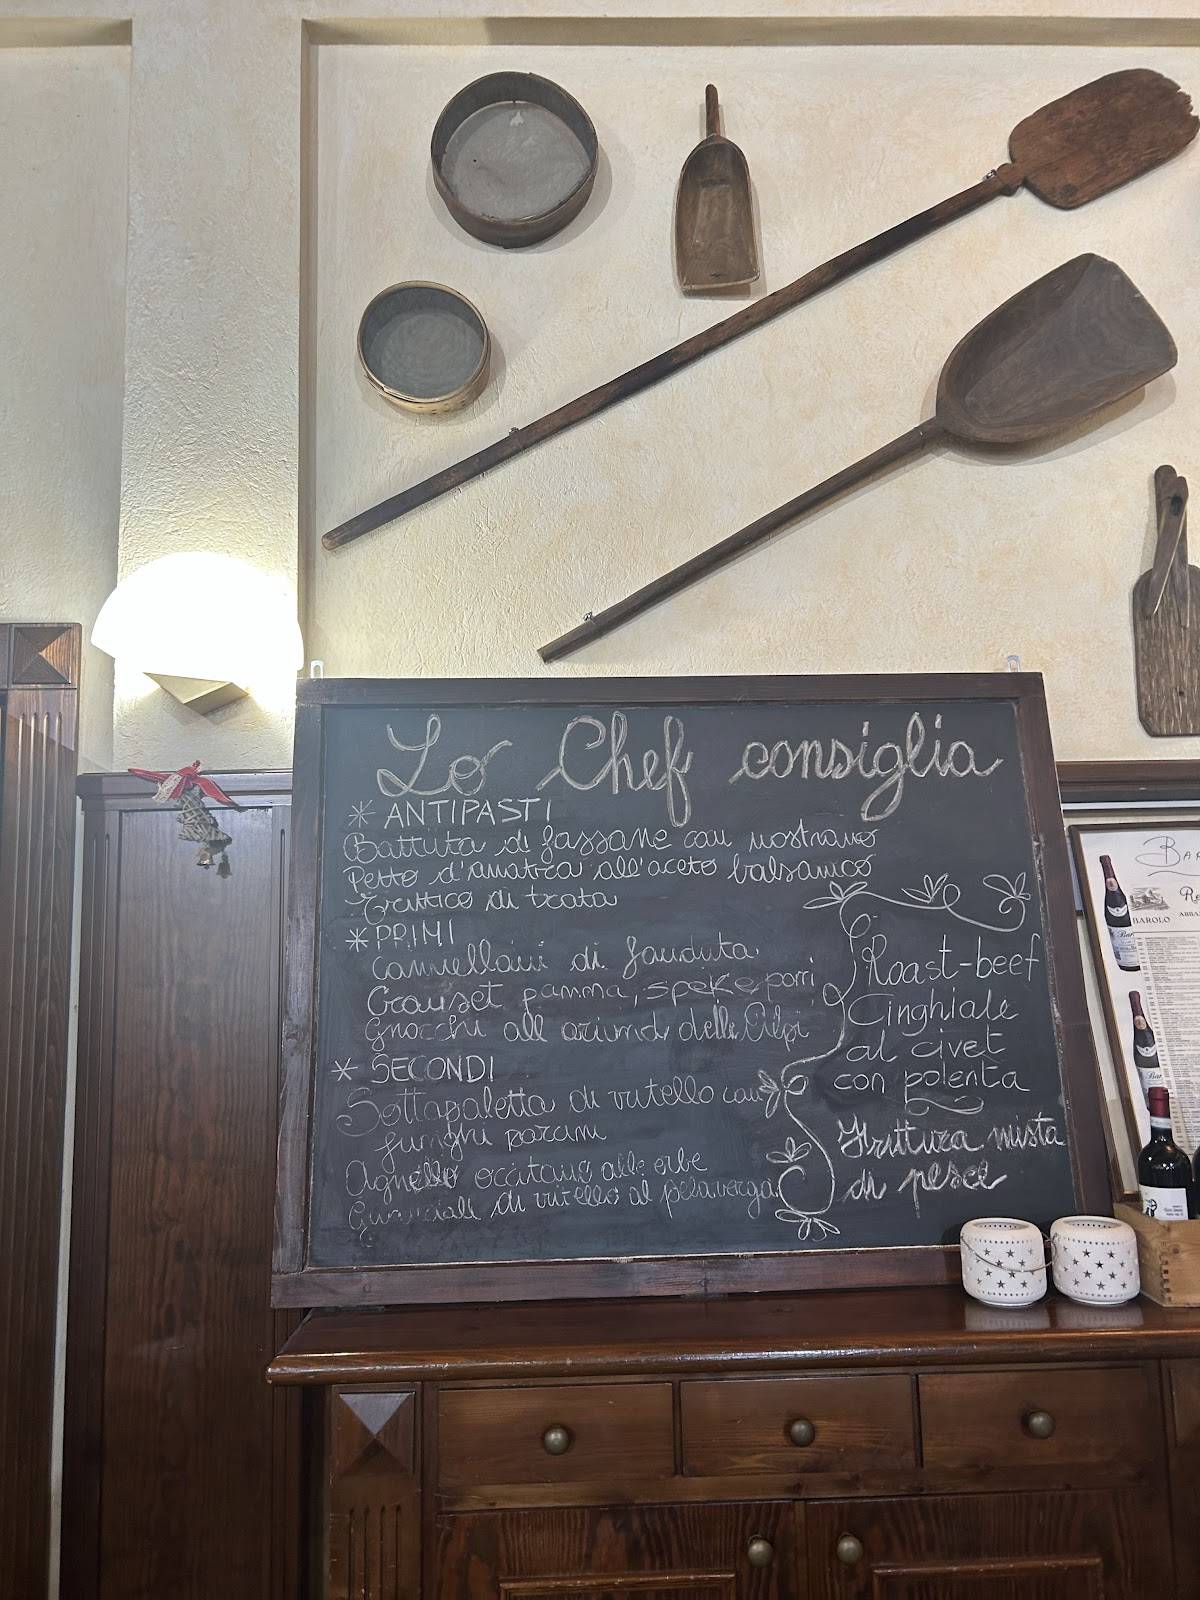 Lo Chef consiglia
* ANTIPASTI
Battuta di fassone con nostrano
Petto d'anatra all'aceto balsamico
Trittico di trota
* PRIMI
Cannelloni di fonduta
Grouset panna, speck e porri
Gnocchi all aromi delle Alpi
* SECONDI
Sottopaletta di vitello con
funghi porcini
Agnello occitano alle erbe
Guanciale di vitello al pelaverga
Roast-beef
Cinghiale
al civet
con polenta
Fruttura mista
di pesce
BAROLO